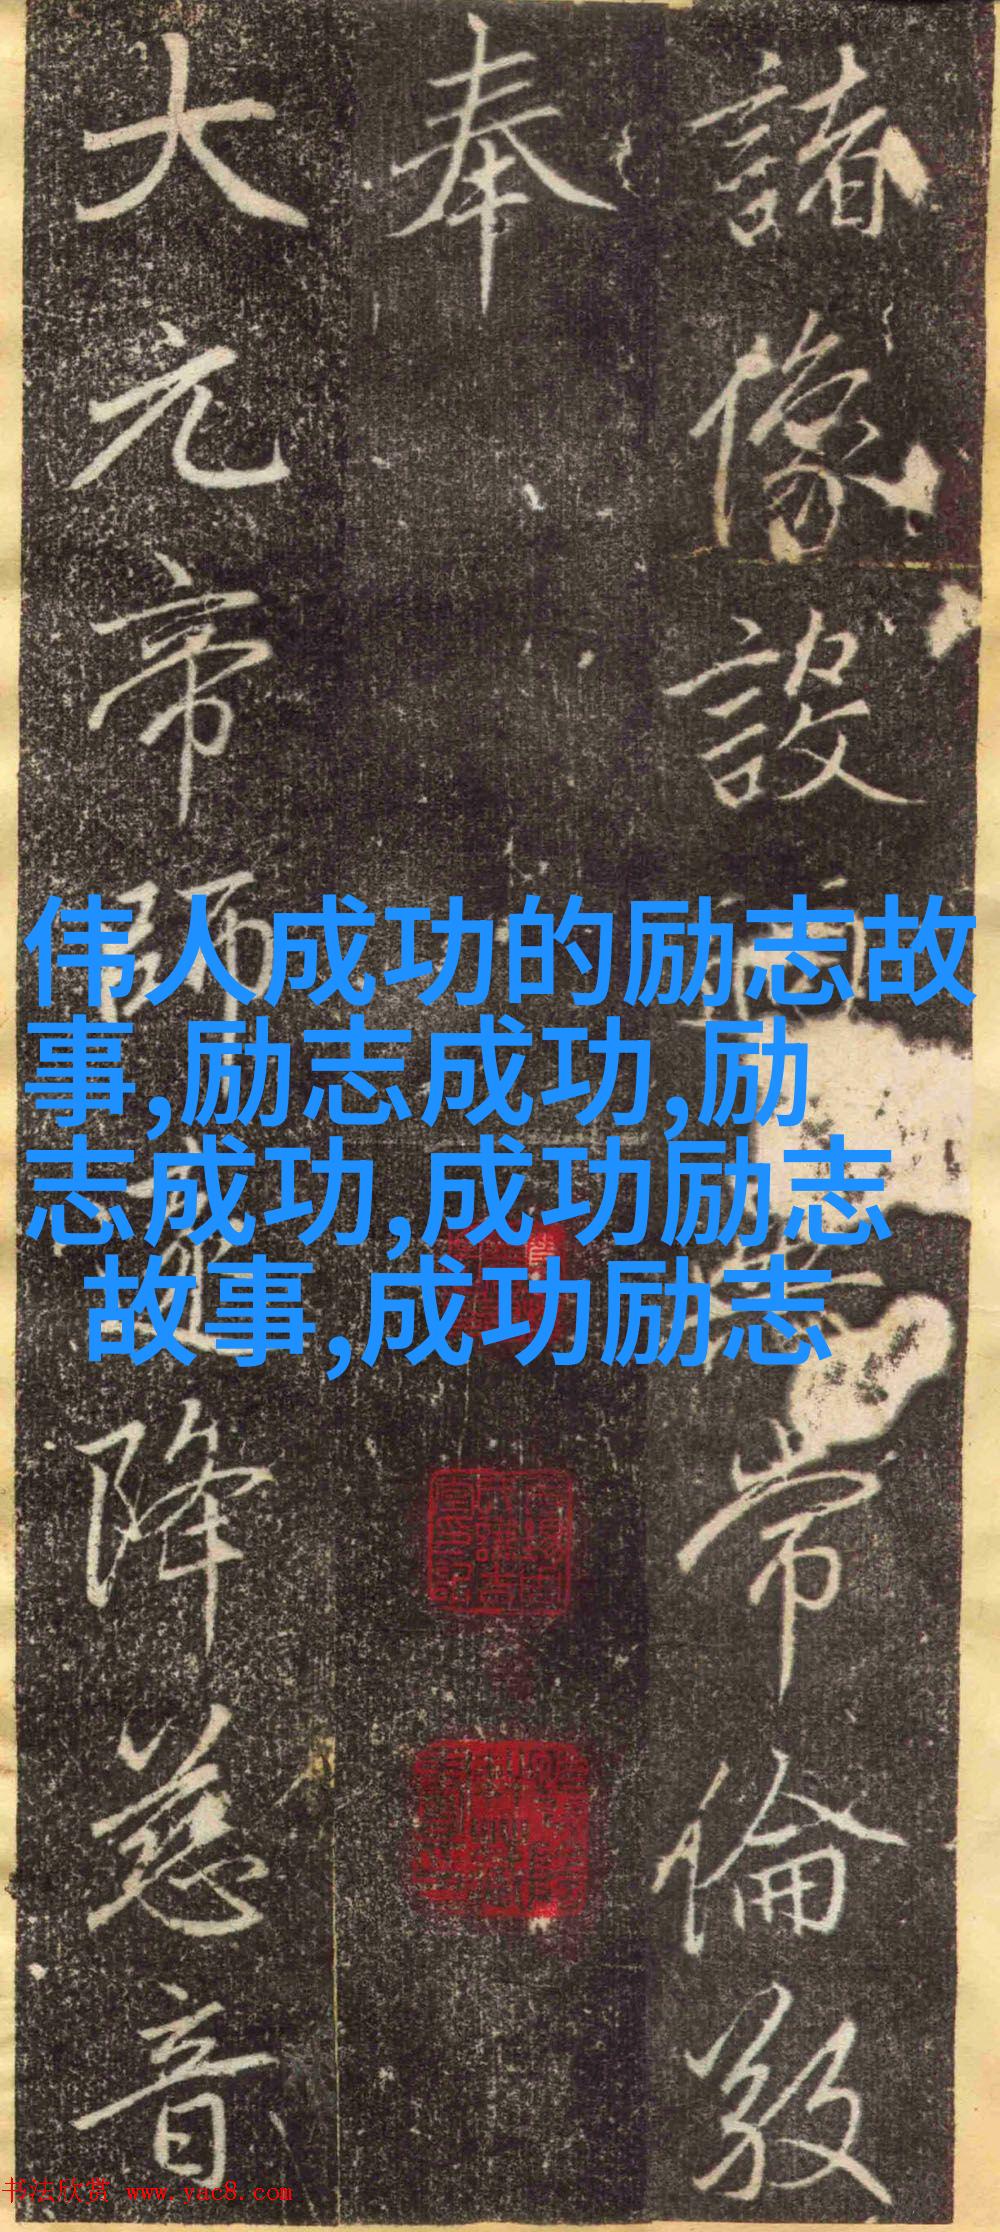 諸像設常倫
奉
大元帝師降慈音
伟人成功的励志故
事,励志成功,励
志成功,成功励志
故事,成功励志
书法欣赏 www.yac8.com